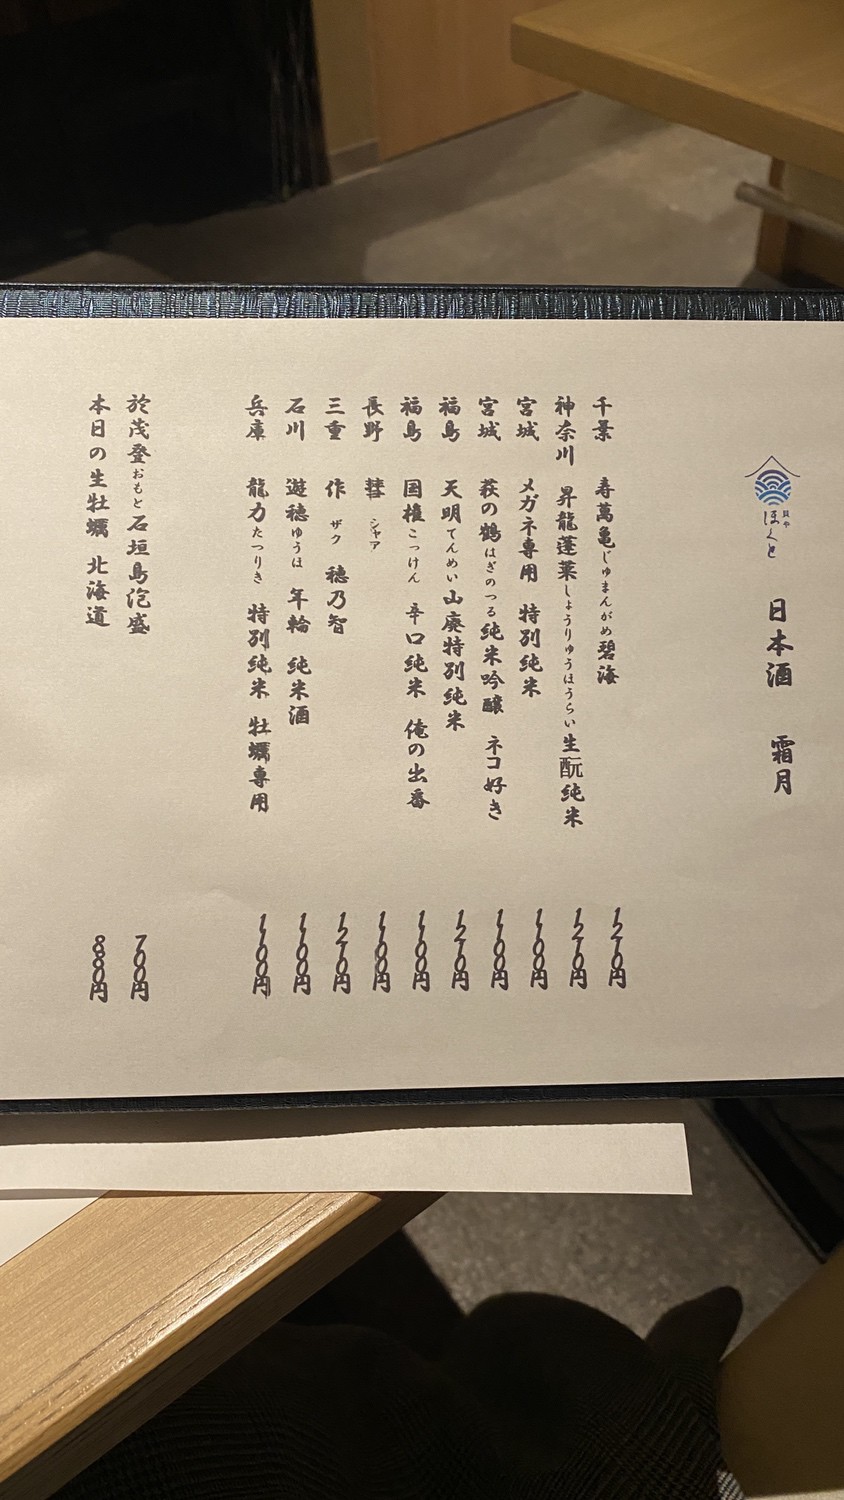 貝や
ほくと
日本酒 霜月
千葉 寿萬亀じゅまんがめ碧海 1210円
神奈川 昇龍蓬莱しょうりゅうほうらい生酛純米 1210円
宮城 メガネ専用 特別純米 1100円
宮城 萩の鶴はぎのつる純米吟醸 ネコ好き 1100円
福島 天明てんめい山廃特別純米 1210円
福島 国権こっけん 辛口純米 俺の出番 1100円
長野 彗 シャア 1100円
三重 作 ザク 穂乃智 1210円
石川 遊穂ゆうほ 年輪 純米酒 1100円
兵庫 龍力たつりき 特別純米 牡蠣専用 1100円
於茂登おもと石垣島泡盛 700円
本日の生牡蠣 北海道 880円